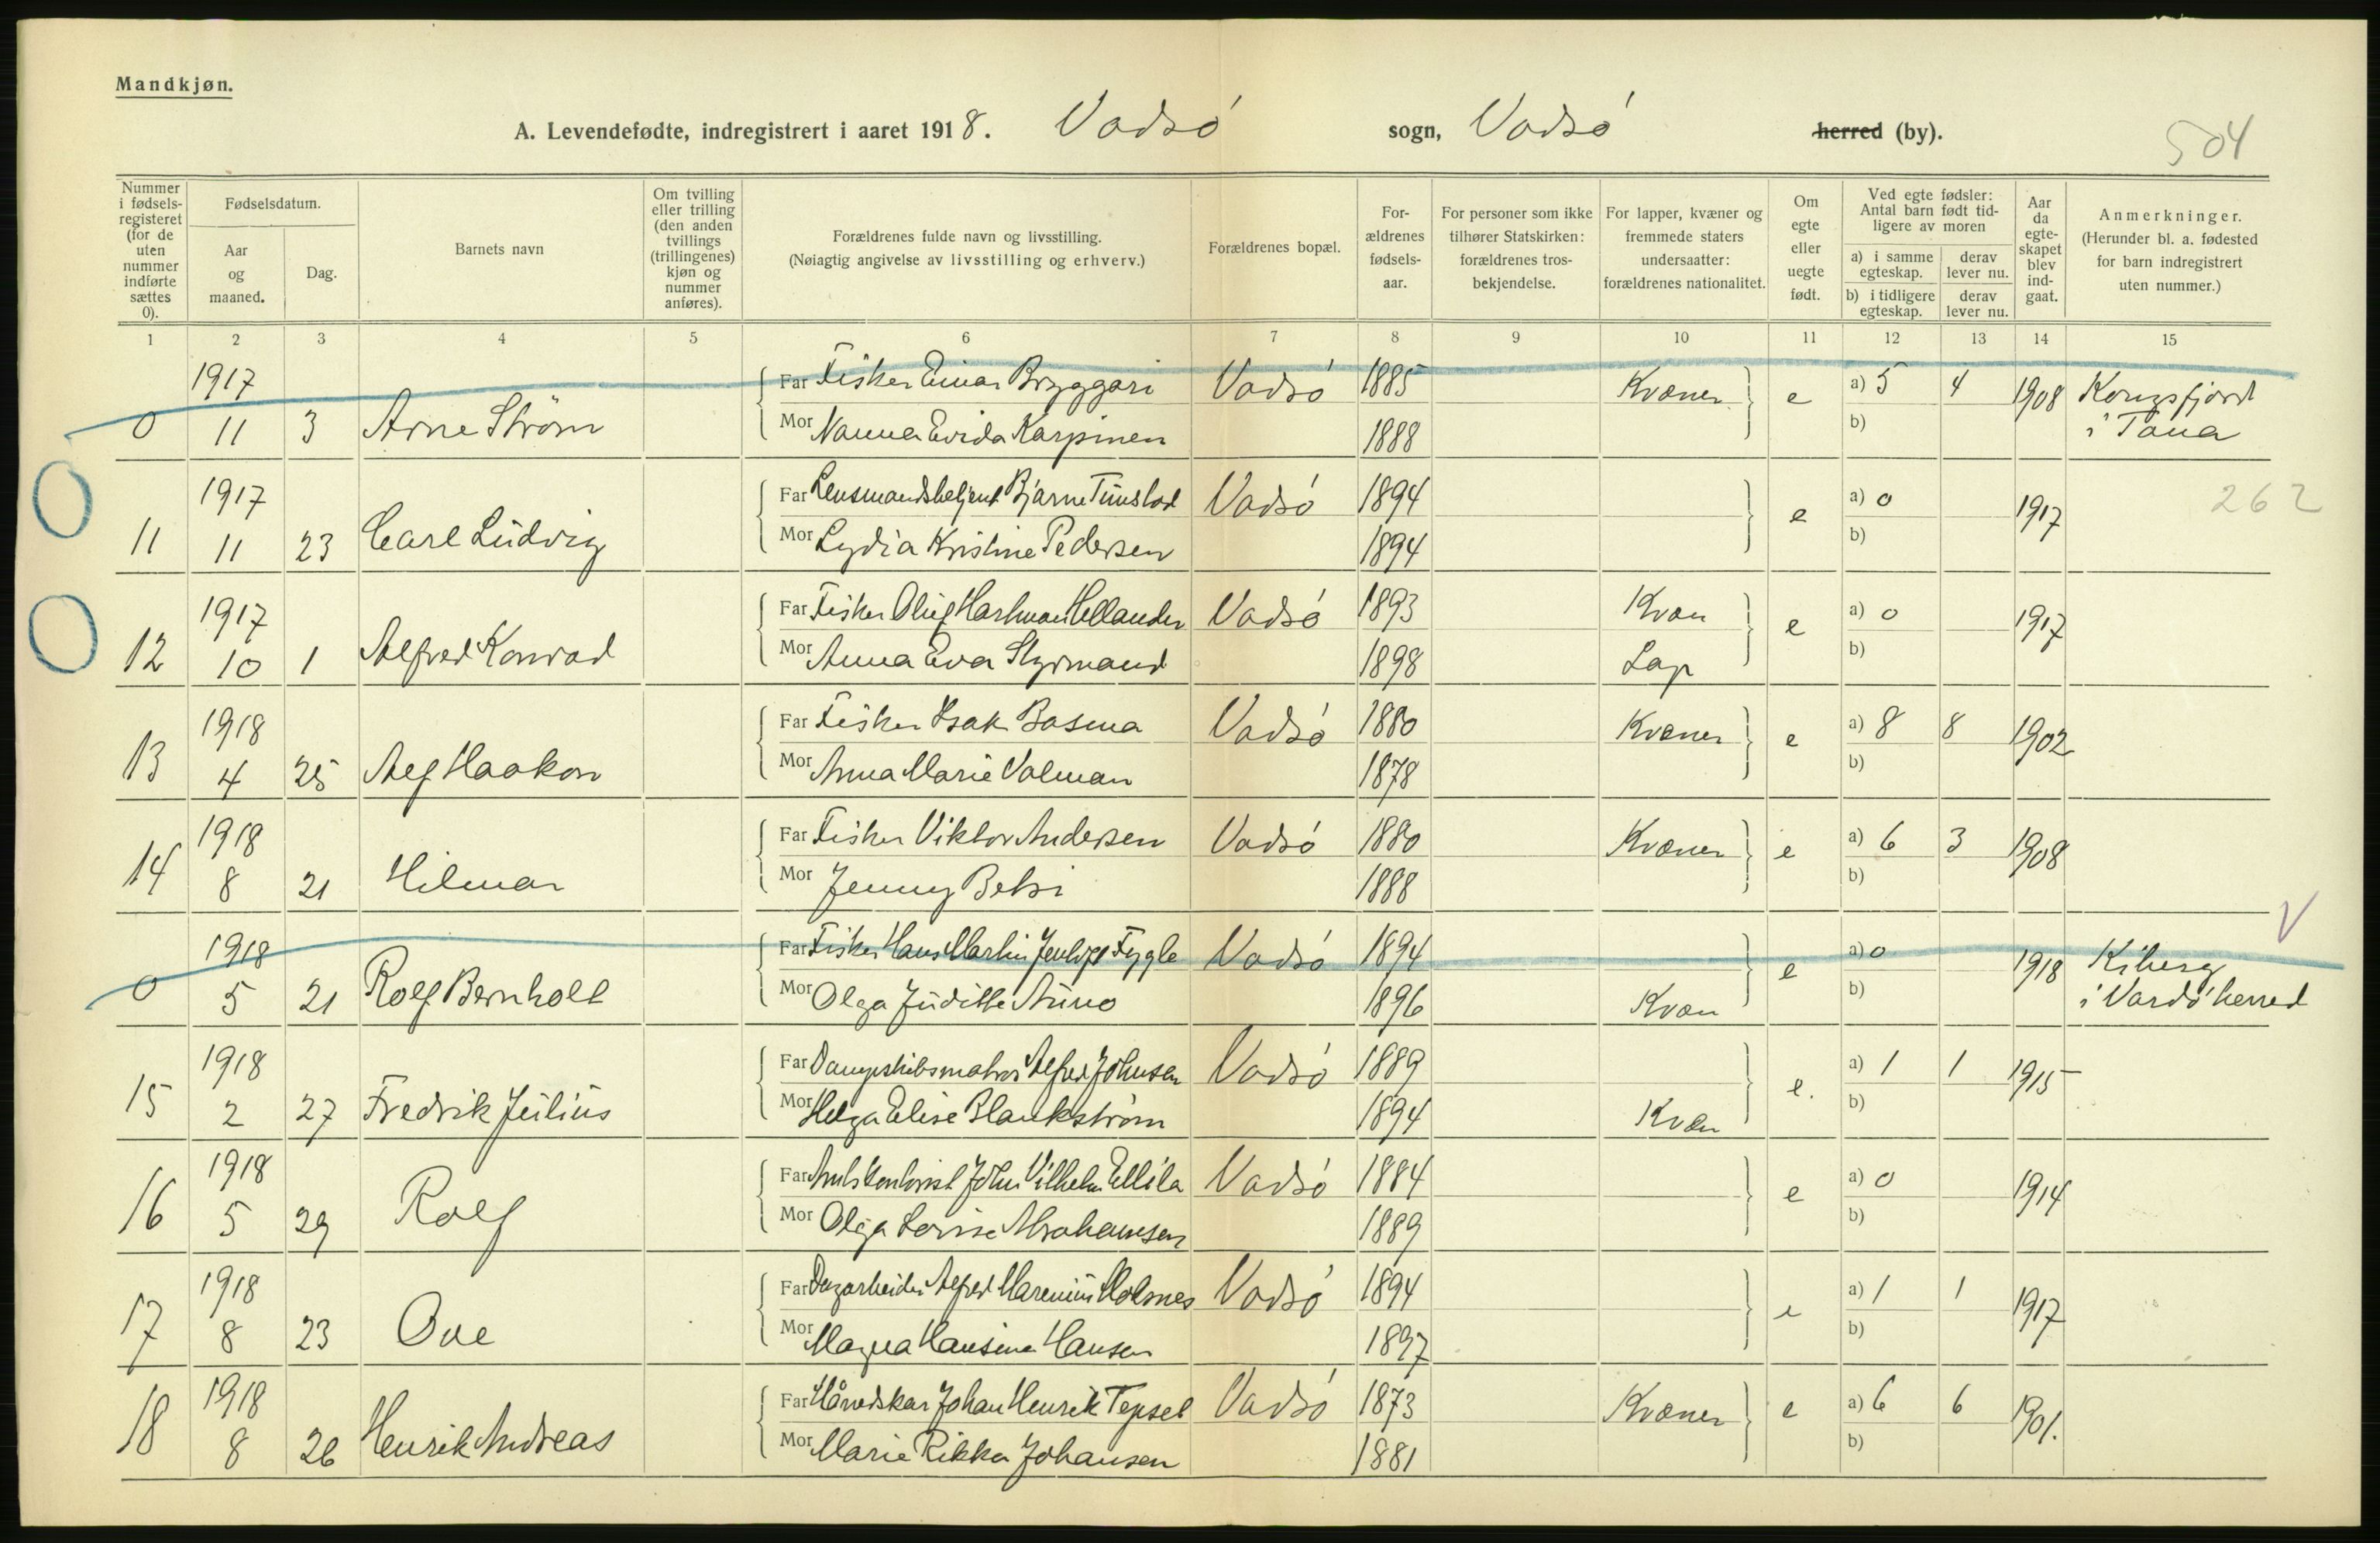 Mandkjøn.
A. Levendefødte, indregistrert i aaret 1918. Vadsö sogn, Vadsö herred (by).
504
Nummer i fødsels-registeret (for de uten nummer indførte sættes 0).
Fødselsdatum.
Aar og maaned.
Dag.
Barnets navn
Om tvilling eller trilling (den anden tvillings (trillingenes) kjøn og nummer anføres).
Forældrenes fulde navn og livsstilling.
(Nøiagtig angivelse av livsstilling og erhverv.)
Forældrenes bopæl.
For-ældrenes fødsels-aar.
For personer som ikke tilhører Statskirken: forældrenes tros-bekjendelse.
For lapper, kvæner og fremmede staters undersaatter: forældrenes nationalitet.
Om egte eller uegte født.
Ved egte fødsler: Antal barn født tid-ligere av moren
a) i samme egteskap. derav lever nu.
b) i tidligere egteskap. derav lever nu.
Aar da egte-skapet blev ind-gaat.
Anmerkninger.
(Herunder bl. a. fødested for barn indregistrert uten nummer.)
1 2 3 4 5 6 7 8 9 10 11 12 13 14 15
1917 Far Fisker Einar Bryggari Vadsö 1885 Kvæner e a) 5 4 1908 Kongsfjord
0 11 3 Arne Ström Mor Nanna Evida Karpinen 1888 b) i Tana
1917 Far Lensmandsbetjent Bjarne Tunstad Vadsö 1894 e a) 0 1917 262
11 11 23 Carl Ludvig Mor Lydia Kristine Pedersen 1894 b)
1917 Far Fisker Oluf Hartman Hellander Vadsö 1893 Kvæn e a) 0 1917
12 10 1 Alfred Konrad Mor Anna Eva Styrmand 1898 Lap b)
1918 Far Fisker Isak Basma Vadsö 1880 Kvæner e a) 8 8 1902
13 4 25 Alf Haakon Mor Anna Marie Valman 1878 b)
1918 Far Fisker Viktor Andersen Vadsö 1880 Kvæner e a) 6 3 1908
14 8 21 Hilmar Mor Jenny Betsi 1888 b)
V
1918 Far Fisker Hans Martin Fygle Vadsö 1894 e a) 0 1918 Kiberg
0 5 21 Rolf Bernholt Mor Olga Judithe Auno 1896 Kvæn b) i Vardö herred
1918 Far Dampskibsmatros Alfred Johnsen Vadsö 1889 e. a) 1 1 1915
15 2 27 Fredrik Julius Mor Helga Elise Blankström 1894 Kvæn b)
1918 Far Amtskontorist John Vilhelm Ellila Vadsö 1884 e a) 0 1914
16 5 29 Rolf Mor Olga Lovise Abrahamsen 1889 b)
1918 Far Dagarbeider Alfred Marenius Holsnes Vadsö 1894 e a) 1 1 1917
17 8 23 Ove Mor Magna Hansine Hansen 1897 b)
1918 Far Johan Henrik Tepsel Vadsö 1873 Kvæner e a) 6 6 1901.
18 8 26 Henrik Andreas Mor Marie Rikka Johansen 1881 b)